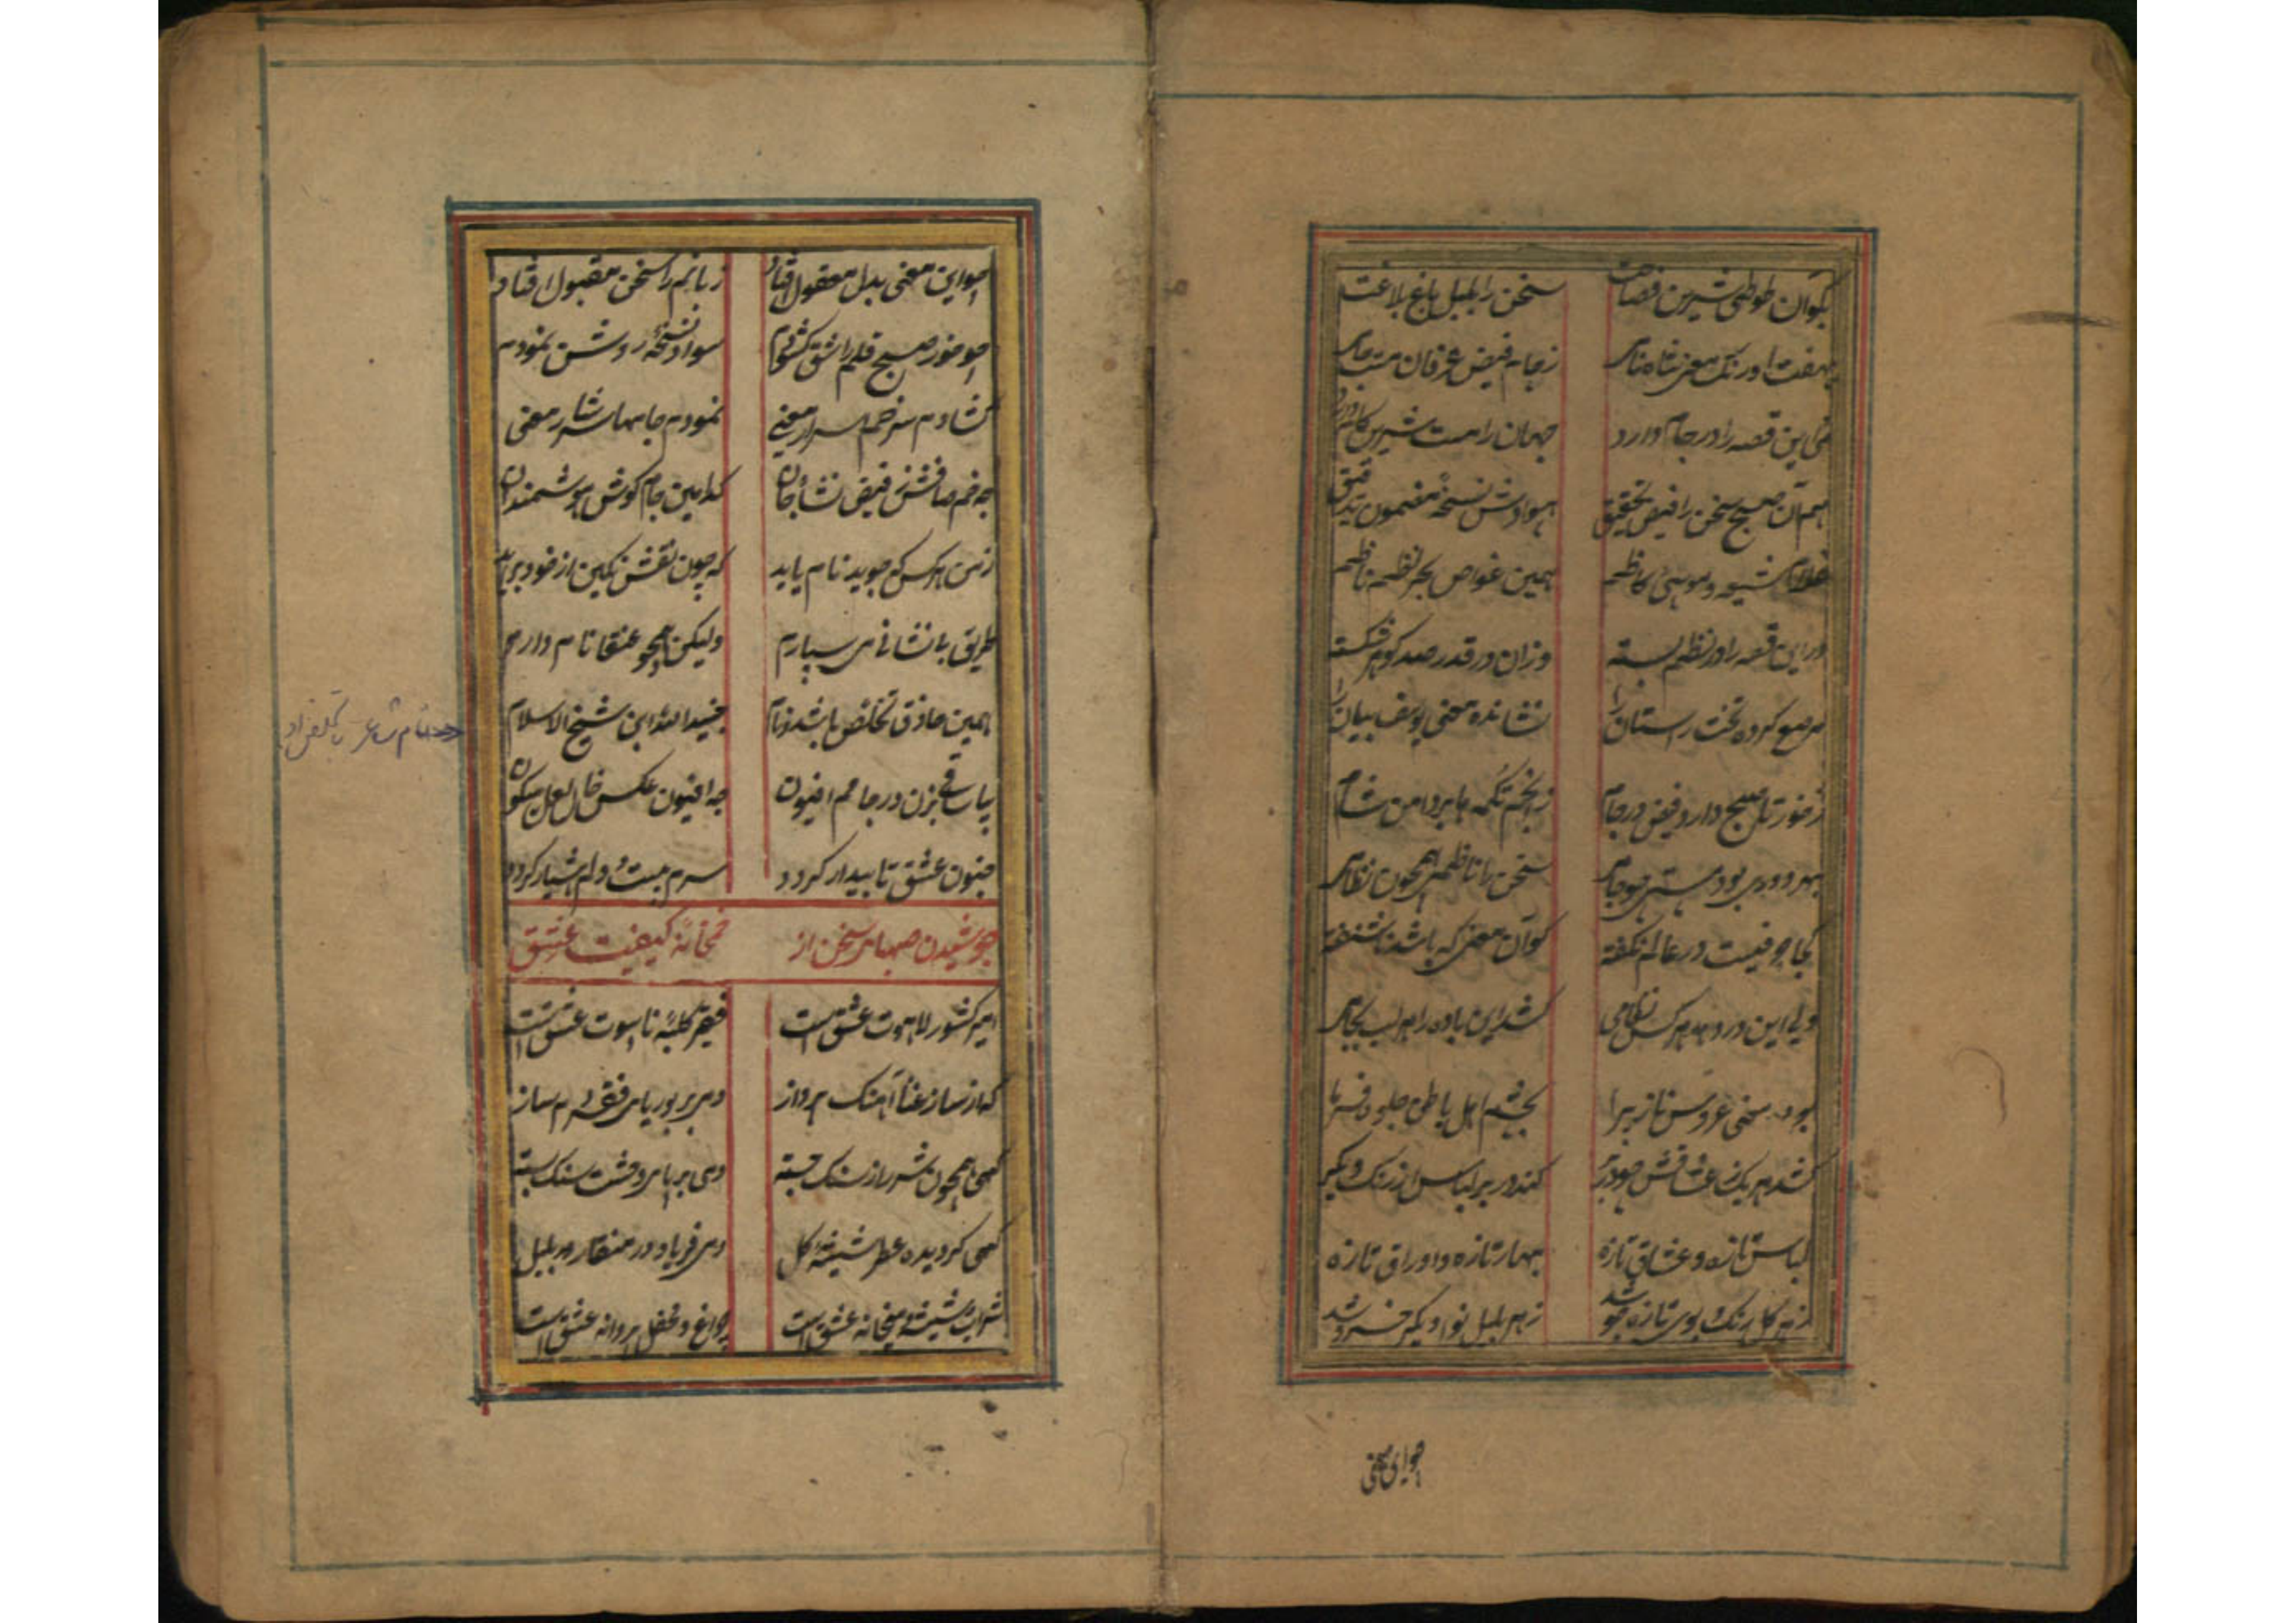 بکو آن طوطی شیرین فصاحت سخن را بلبل باغ بلاغت
بهفت اورنک معنی شاه نامی ز جام فیض عرفان مست جامی
این قصه را در جام دارد جهان را مست شیرین کام دارد
هم آن صبح سخن را فیض تحقیق سوادش نسخهٔ مضمون تدقیق
غلام شیعه و موسی کاظم همین غواص بحر نظم ناظم
در این قصه را در نظم بسته وزان در قدر صد کوهر شکسته
مرصع کرده تخت راستان را نشانده معنی یوسف بیان را
ز خور تا صبح دارد فیض در جام ز انجم تکمه ها بر دامن شام
بهر دوری بود مستی چو جامی سخن را ناظمی همچون نظامی
کجا حرفیست در عالم نکفته کو آن معنی که باشد ناشنفته
ولی این درد هر کس نظامی کشد این باده را هر لب بجامی
بود سخن عروس ناز پیرا بچشم اهل باطن جلوه فرما
کشد هر یک ز عشاقش چو در بر کند در بر لباس از رنک دیکر
لباس تازه و عشاق تازه بهار تازه و اوراق تازه
ز هر کل رنک و بوی تازه جوشد ز هر بلبل نوا دیکر خروشد
چو این معنی
چو این معنی بدل معقول افتاد زبانم را سخن مقبول افتاد
چو خور صبح قلم را شق کشودم سواد نسخهٔ روشن نمودم
کشادم سر خم اسرار معنی نمودم جامها سرشار معنی
چه خم صافش ز فیض نشأه جان کدامین جام کوش هوشمندان
ز من هر کس که جوید نام یابد که چون نقش نکین از خود برآید
طریق بی نشانی می سپارم ولیکن همچو عنقا نام دارم
همین حاذق تخلص باشد و نام جنیدالله ابن شیخ الاسلام
<نام شاعر با تخلص او
بیا ساقی بزن در جامم افیون چه افیون عکس خال لعل میکون
جنون عشق تا بیدار کردد سرم مست و دلم هشیار کردد
جوشیدن صهبای سخن از خمخانهٔ کیفیت عشق
امیر کشور لاهوت عشق است فقیر کلبهٔ ناسوت عشق است
که از ساز غنا آهنک پرداز دمی بر بوریای فقر دم ساز
کهی همچون شرر از سنک جسته دمی بر پای وحشت سنک بسته
کهی کردیده عطر شیشهٔ کل دمی فریاد در منقار بلبل
شراب و شیشه و میخانه عشق است چراغ و محفل و پروانه عشق است